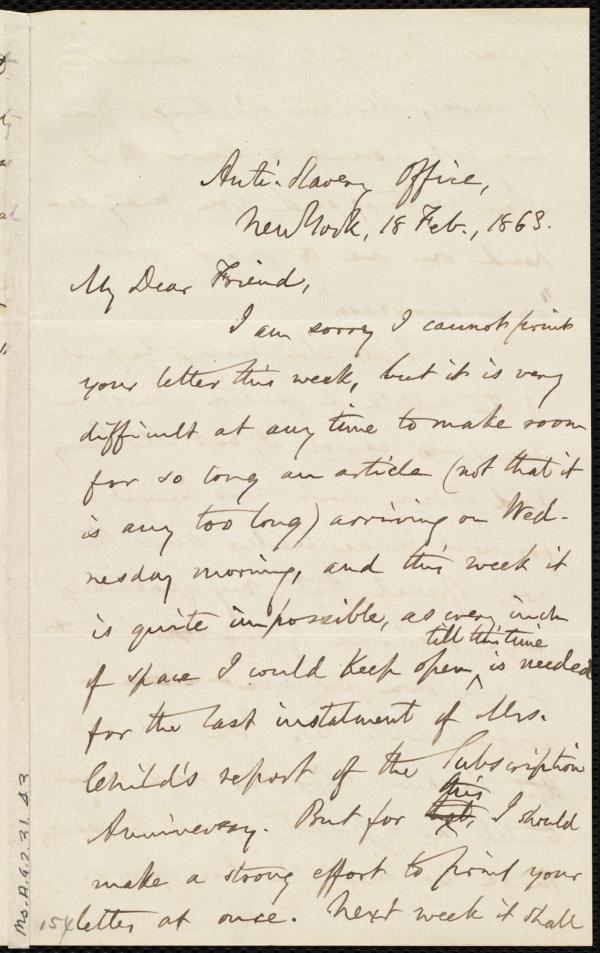 Anti-Slavery Office,
New York, 18 Feb., 1863.
My Dear Friend,
I am sorry I cannot print
your letter this week, but it is very
difficult at any time to make room
for so long an article (not that it
is any too long) arriving on Wed-
nesday morning, and this week it
is quite impossible, as every inch
till this time
of space I could keep open ^ is needed
for the last instalment of Mrs.
Child's report of the Subscription
Anniversary. But for
this
I should
make a strong effort to print your
letter at once. Next week it shall
Ms. A.9.2.31.43